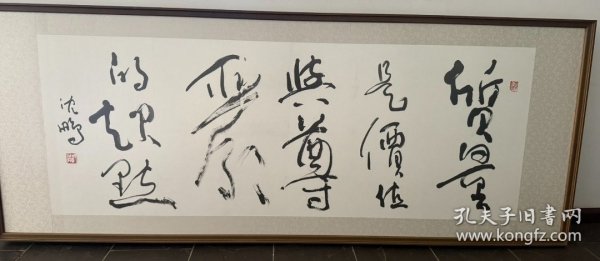 質量
是價值
與尊
嚴
的起點
沈鵬
孔夫子旧书网
www.kongfz.com